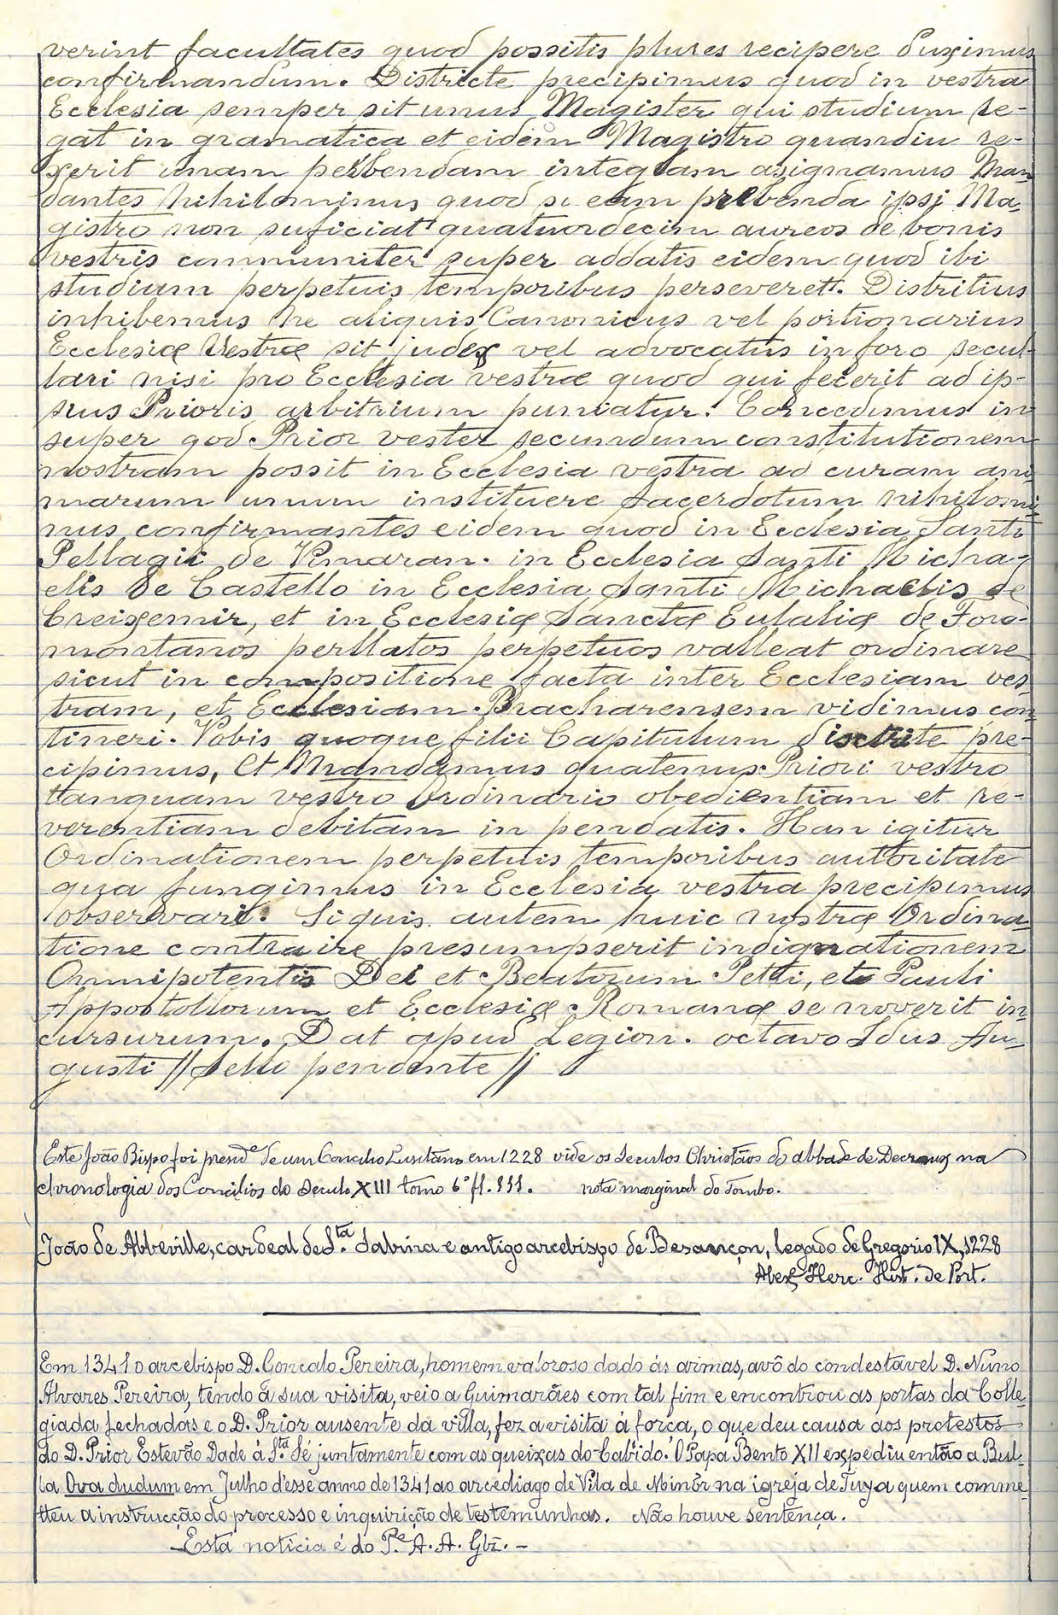 verint facultates quod possitis plures recipere duximus
confirmandum. Districte precipimus quod in vestra
Ecclesia semper sit unus Magister qui studium re-
gat in gramatica et eidem Magistro quandiu re-
xerit unam prebendam integram asignamus Man
dantes nihilominus quod si eam prebenda ipsi Ma-
gistro non suficiat quatuordecim aureos de bonis
vestris communiter super addatis eidem quod ibi
studium perpetuis temporibus perseverett. Distritius
inhibemus ne aliquis Canonicus vel portionarius
Ecclesiæ Vestræ sit judex vel advocatus in foro secul-
lari nisi pro Ecclesia vestræ quod qui fecerit ad ip-
sius Prioris arbitrium puniatur. Concedimus in
super qod Prior vester secundum constitutionem
nostram possit in Ecclesia vestra ad curam ani
marum unum instituere Sacerdotum nihilomi
nus confirmantes eidem quod in Ecclesia Santi
Pellagii de Vimaran. in Ecclesia Santi Micha-
elis de Castello in Ecclesia Santi Michaelis de
Creixemir, et in Ecclesiæ Sanctæ Eulaliæ de Fora-
montanos perllatos perpetuos valleat ordinare
sicut in compositione facta inter Ecclesiam ves
tram, et Ecclesiam Bracharensem vidimus con
tineri. Vobis quoque filii Capitulum discrite pre-
cipimus, Et Mandamus quatenus Priori vestro
tanquam vestro Ordinario obedientiam et re-
verentiam debitam in pendatis. Han igitur
Ordinationem perpetuis temporibus autoritate
qua fungimus in Ecclesia vestra precipimus
observari. Si quis autem huic nostræ Ordina
tione contra ire presumpserit indignationem
Omnipotentis Dei et Beatorum Petri, et Pauli
Appostollorum et Ecclesiæ Romanæ se noverit in
cursurum. Dat apud Legion. octavo Idus Au-
gusti // Sello pendente //
Este João Bispo foi presid.e de um Concilio Lusitano em 1228 vide os Seculos Christãos do abbade de Decreux na
chronologia dos Concilios do Seculo XIII tomo 6º fl. 111. nota marginal do Tombo.
João de Abbeville, cardeal de S.ta Sabina e antigo arcebispo de Besançon, legado de Gregorio IX, 1228
Alex. Herc. Hist. de Port.
Em 1341 o arcebispo D. Goncalo Pereira, homem valoroso dado ás armas, avô do condestavel D. Nuno
Alvares Pereira, tendo á sua visita, veio a Guimarães com tal fim e encontrou as portas da Colle
giada fechadas e o D. Prior ausente da villa, fez a visita á força, o que deu causa aos protestos
do D. Prior Estevão Dade à S.ta Sé juntamente com as queixas do Cabido. O Papa Bento XII expediu então a Bul-
la Dva dudum em Julho d'esse anno de 1341 ao arcediago de Vila de Minôr na igreja de Tuy a quem comme
tteu a instrucção do processo e inquirição de testemunhas. Não houve sentença.
— Esta noticia é do P.e A. A. Gbz. —